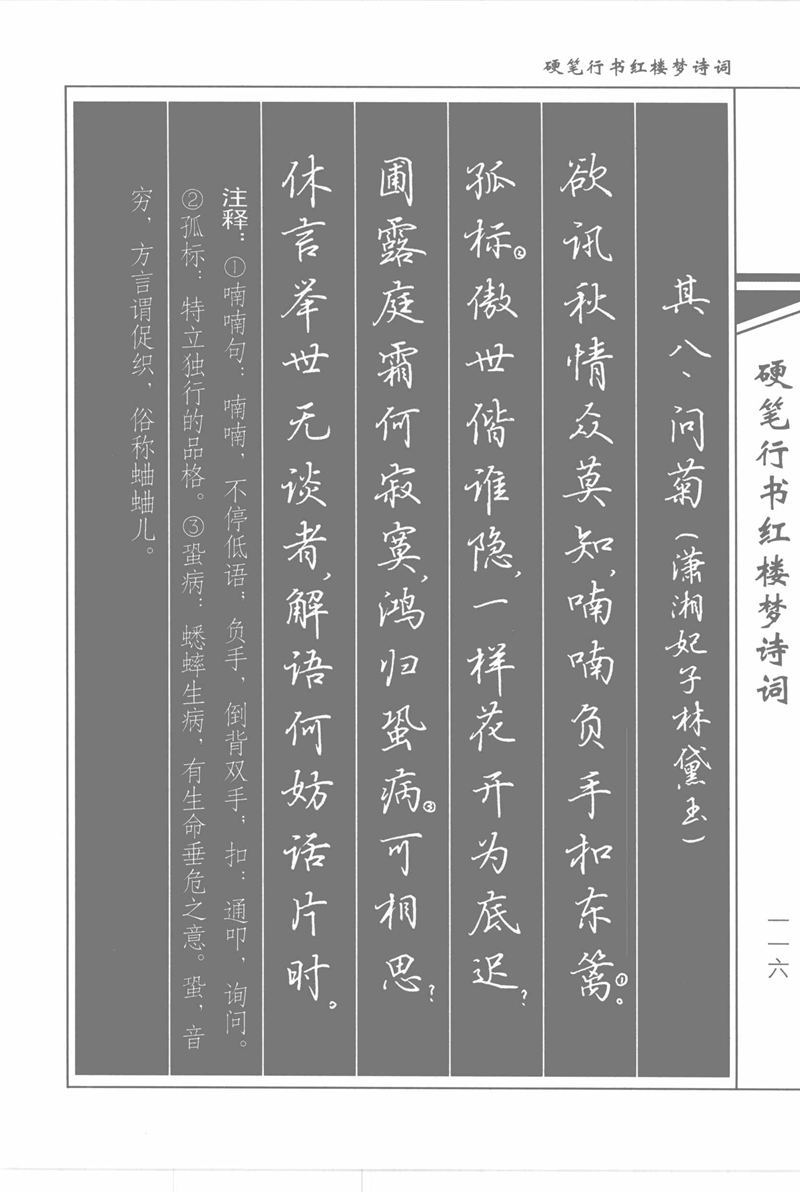 硬笔行书红楼梦诗词
硬笔行书红楼梦诗词
一一六
其八、问菊(潇湘妃子林黛玉)
欲讯秋情众莫知,喃喃负手扣东篱①。
孤标②傲世偕谁隐,一样花开为底迟?
圃露庭霜何寂寞,鸿归蛩病③可相思?
休言举世无谈者,解语何妨话片时。
注释:①喃喃句:喃喃,不停低语;负手,倒背双手;扣:通叩,询问。
②孤标:特立独行的品格。③蛩病:蟋蟀生病,有生命垂危之意。蛩,音
穷,方言谓促织,俗称蛐蛐儿。